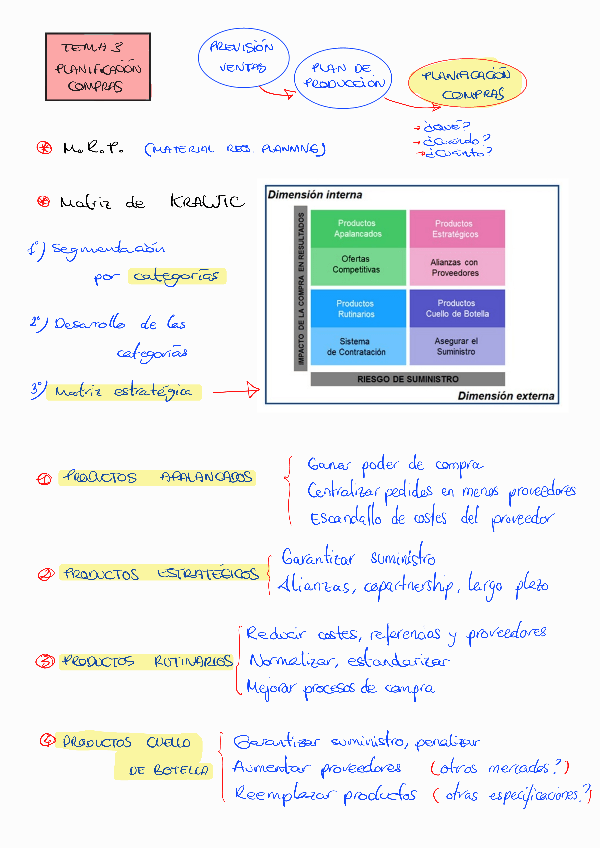 TEMA 3
PLANIFICACIÓN
COMPRAS
PREVISIÓN
VENTAS
PLAN DE
PRODUCCIÓN
PLANIFICACIÓN
COMPRAS
→ ¿QUÉ?
→ ¿Cuándo?
→ ¿Cuánto?
* M.R.P. (MATERIAL REQ. PLANNING)
* Matriz de KRALJIC
1º) Segmentación
por categorías
2º) Desarrollo de las
categorías
3º) Matriz estratégica
Dimensión interna
IMPACTO DE LA COMPRA EN RESULTADOS
Productos
Apalancados
Productos
Estratégicos
Ofertas
Competitivas
Alianzas con
Proveedores
Productos
Rutinarios
Productos
Cuello de Botella
Sistema
de Contratación
Asegurar el
Suministro
RIESGO DE SUMINISTRO
Dimensión externa
1 PRODUCTOS APALANCADOS
Ganar poder de compra
Centralizar pedidos en menos proveedores
Escandallo de costes del proveedor
2 PRODUCTOS ESTRATÉGICOS
Garantizar suministro
Alianzas, copartnership, largo plazo
3 PRODUCTOS RUTINARIOS
Reducir costes, referencias y proveedores
Normalizar, estandarizar
Mejorar procesos de compra
4 PRODUCTOS CUELLO
DE BOTELLA
Garantizar suministro, penalizar
Aumentar proveedores (otros mercados?)
Reemplazar productos (otras especificaciones?)